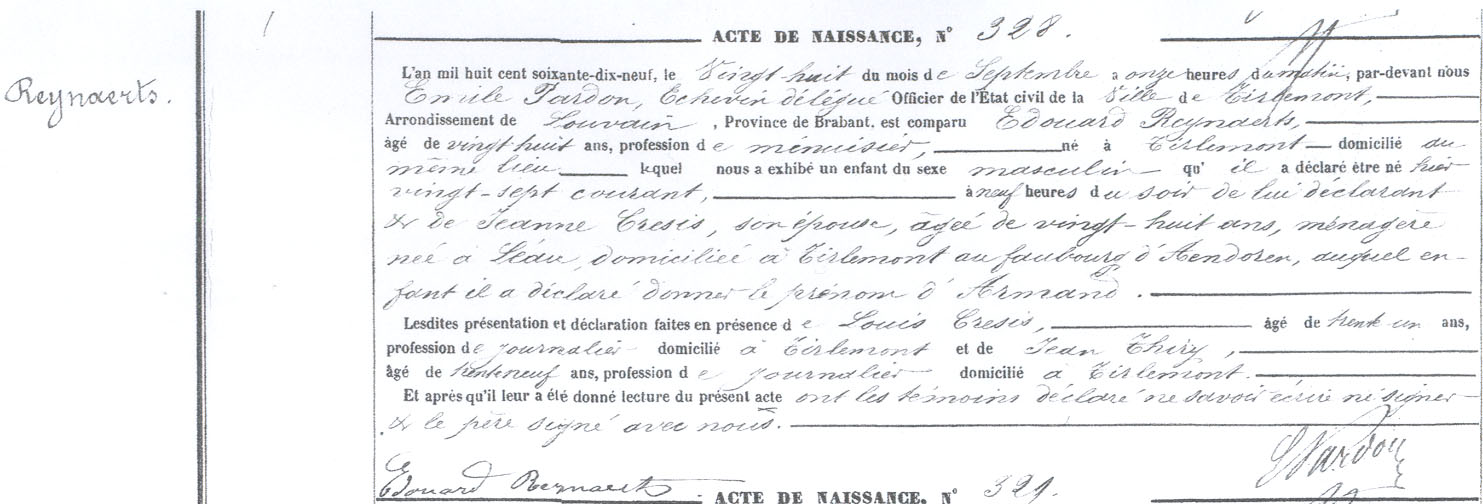 ACTE DE NAISSANCE, N° 328.
Reynaerts.
L'an mil huit cent soixante-dix-neuf, le Vingt-huit du mois de Septembre a onze heures du matin, par-devant nous
Emile Pardon, Echevin délégué Officier de l'Etat civil de la Ville de Tirlemont,
Arrondissement de Louvain, Province de Brabant. est comparu Edouard Reynaerts,
âgé de vingt huit ans, profession de ménuisier, né à Tirlemont domicilié au
même lieu lequel nous a exhibé un enfant du sexe masculin qu' il a déclaré être né hier
vingt-sept courant, à neuf heures du soir de lui déclarant
& de Jeanne Cresis, son épouse, âgée de vingt-huit ans, ménagère
née à Léau, domiciliée à Tirlemont au faubourg d'Aendoren, auquel en-
fant il a déclaré donner le prénom d'Armand.
Lesdites présentation et déclaration faites en présence de Louis Cresis, âgé de trente un ans,
profession de journalier domicilié à Tirlemont et de Jean Thiry,
âgé de trente neuf ans, profession de journalier domicilié à Tirlemont.
Et après qu'il leur a été donné lecture du présent acte ont les témoins déclaré ne savoir écrire ni signer
& le père signé avec nous.
Edouard Reynaerts
E Pardon
ACTE DE NAISSANCE, N° 329.